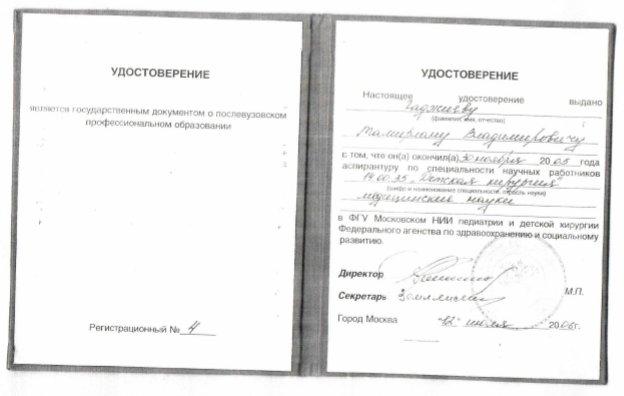 УДОСТОВЕРЕНИЕ
является государственным документом о послевузовском
профессиональном образовании
Регистрационный № 4
УДОСТОВЕРЕНИЕ
Настоящее удостоверение выдано
Гаджиеву
(фамилия, имя, отчество)
Владимировичу
в том, что он(а) окончил(а) 30 ноября 2005 года
аспирантуру по специальности научных работников
14.00.35 „Детская хирургия"
(шифр и наименование специальности, отрасль науки)
медицинские науки
в ФГУ Московском НИИ педиатрии и детской хирургии
Федерального агенства по здравоохранению и социальному
развитию.
Директор
М.П.
Секретарь
Город Москва "12" июля 2006г.